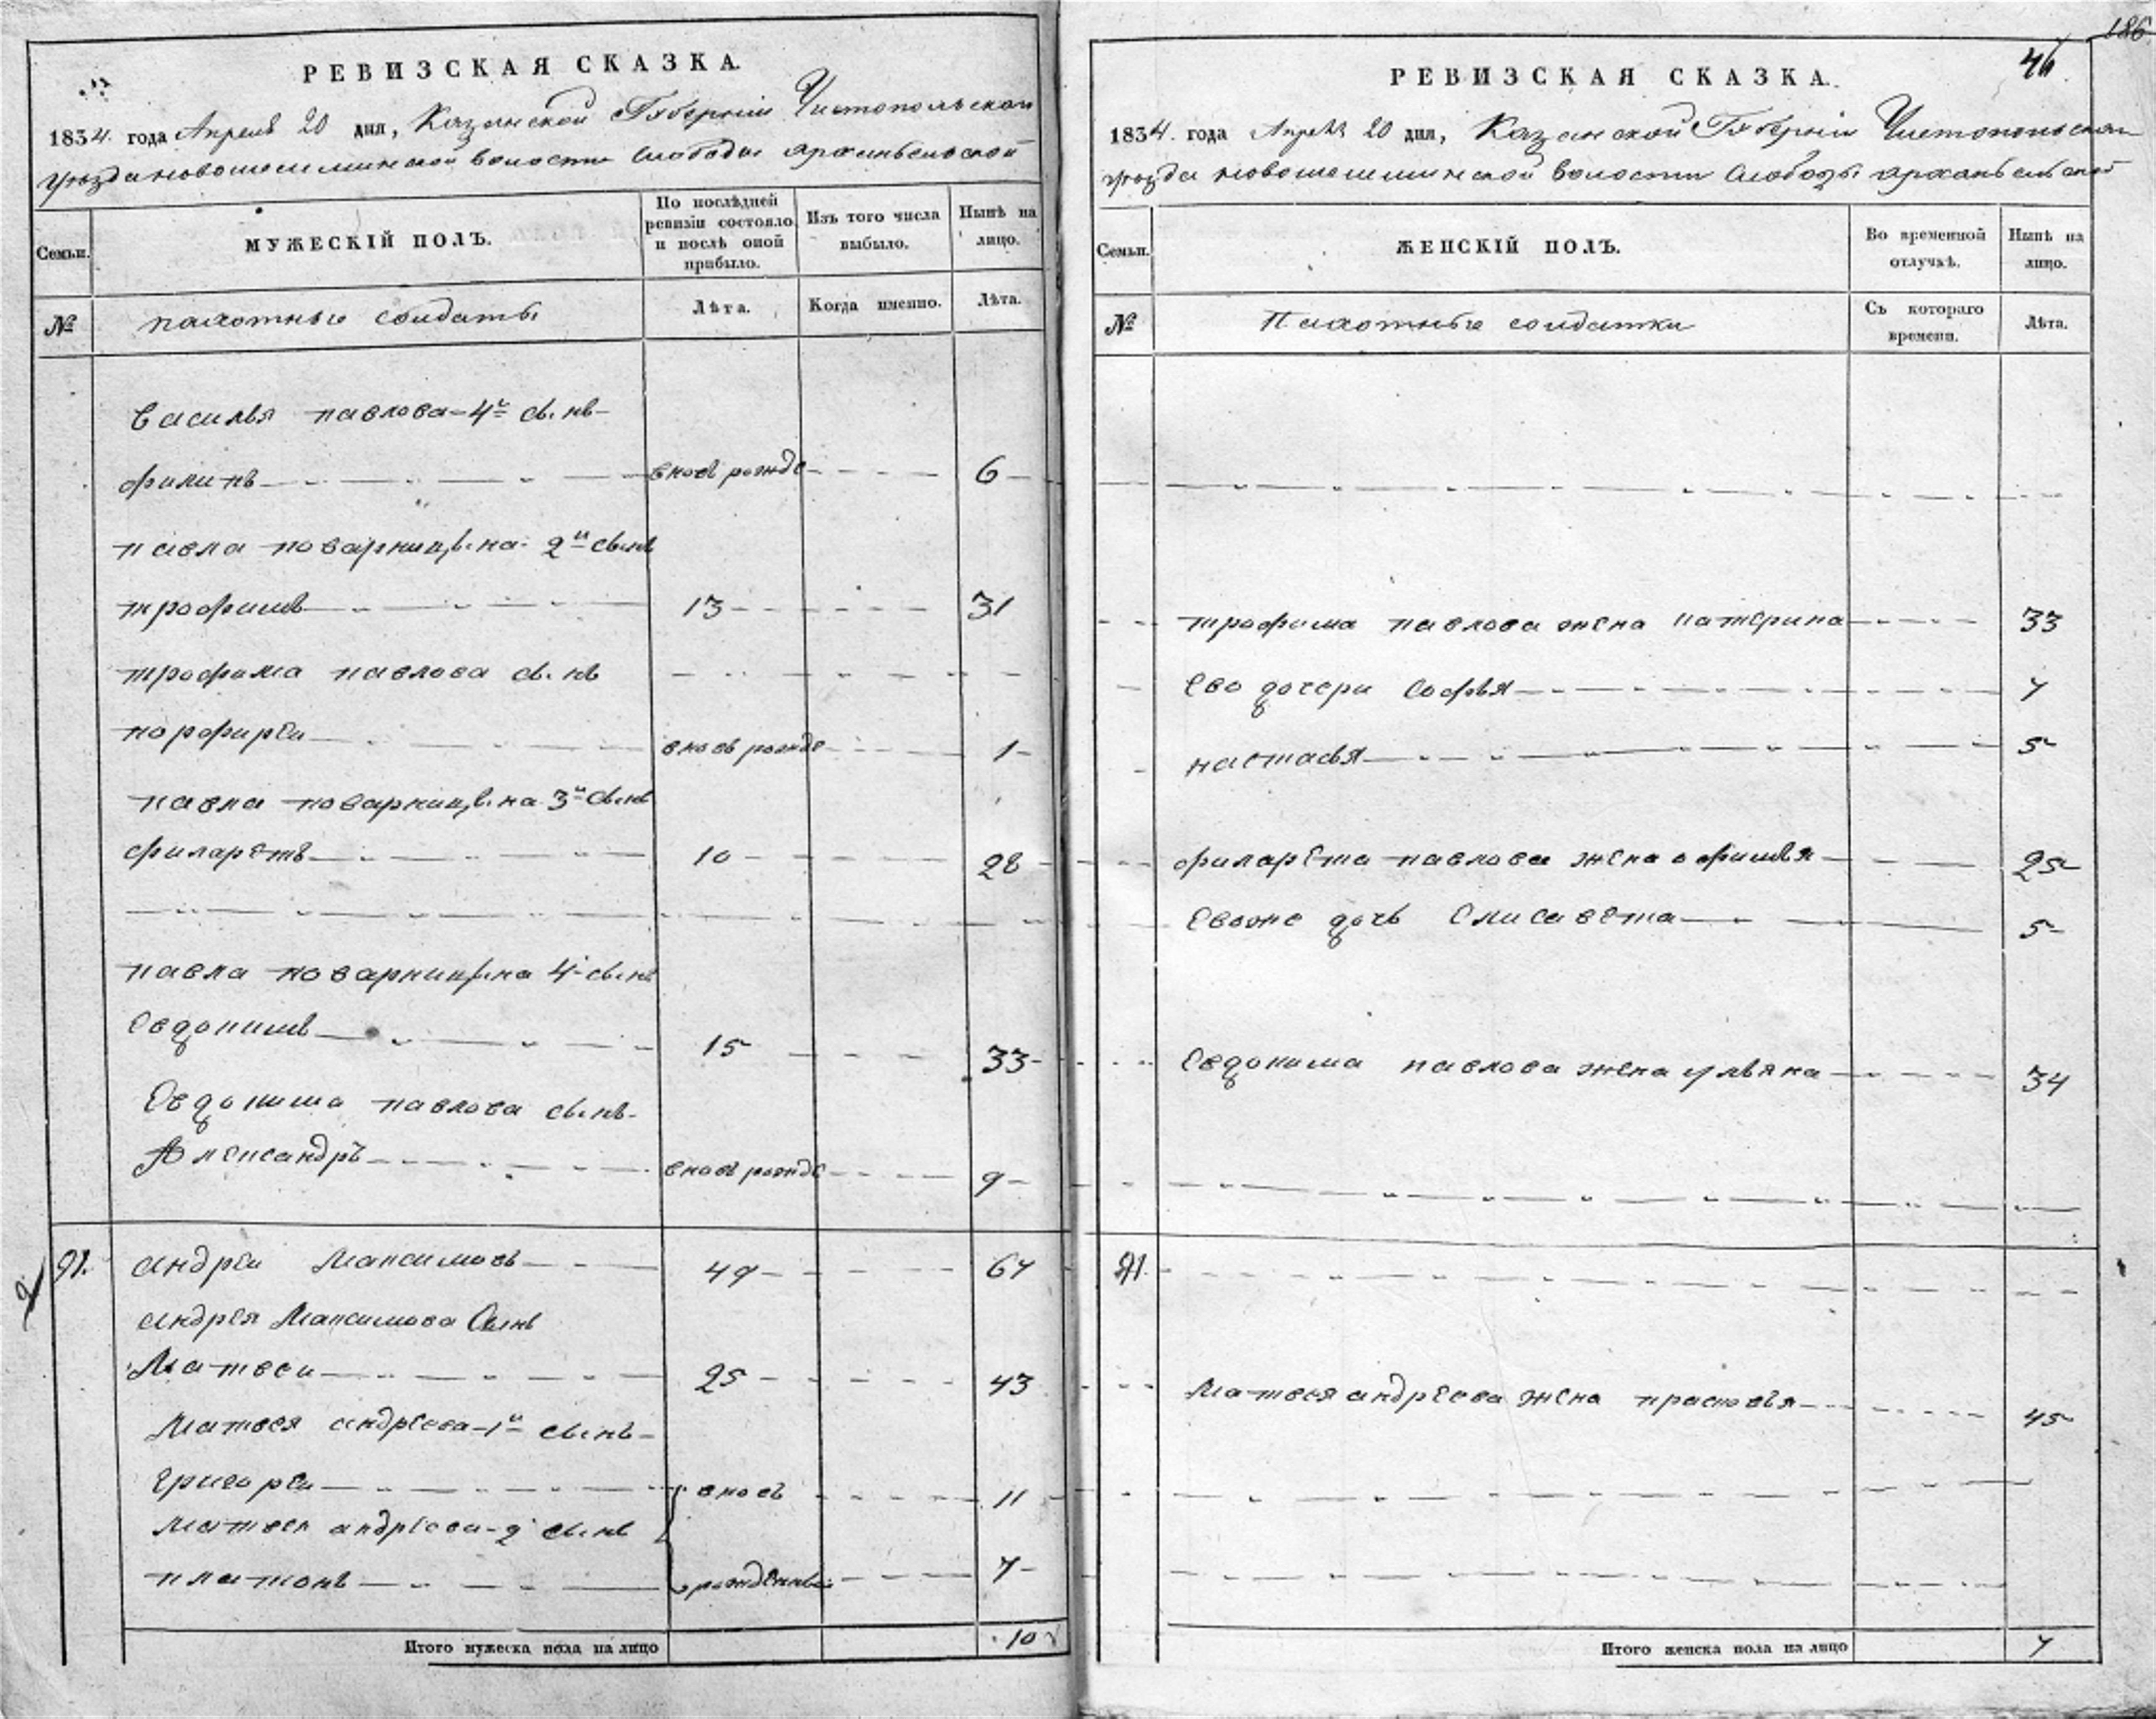 РЕВИЗСКАЯ СКАЗКА.
1834. года Апреля 20 дня, Казанской Губернiи Чистопольскаго
уѣзда новошешминской волости Слободы архангельской
Семьи.
МУЖЕСКІЙ ПОЛЪ.
По послѣдней ревизіи состояло и послѣ оной прибыло.
Изъ того числа выбыло.
Нынѣ на лицо.
№
пахотныя солдаты
Лѣта.
Когда именно.
Лѣта.
Василья павлова 4й сынъ
филипъ вновь рожде 6
павла поварницына 2й сынъ
трофимъ 13 31
трофима павлова сынъ
порфиреи вновь рожде 1
павла поварницына 3й сынъ
филаретъ 10 28
павла поварницына 4й сынъ
Евдокимъ 15 33
Евдокима павлова сынъ
Александръ вновь рожде 9
91. андреи Максимовъ 49 67
андрея Максимова Сынъ
Матвеи 25 43
Матвея андреева 1й сынъ
григореи вновь 11
Матвея андреева 2й сынъ
платонъ рожденныи 7
Итого мужеска пола на лицо 10
186
46
РЕВИЗСКАЯ СКАЗКА.
1834. года Апреля 20 дня, Казанской Губернiи Чистопольскаго
уѣзда новошешминской волости Слободы архангельской
Семьи.
ЖЕНСКІЙ ПОЛЪ.
Во временной отлучкѣ.
Нынѣ на лицо.
№
Пахотныя солдатки
Съ котораго времени.
Лѣта.
трофима павлова жена катерина 33
Ево дочери Софья 7
настасья 5
филарета павлова жена офимья 25
Евоже дочь Елисавета 5
Евдокима павлова жена ульяна 34
91.
Матвея андреева жена прасковья 45
Итого женска пола на лицо 7